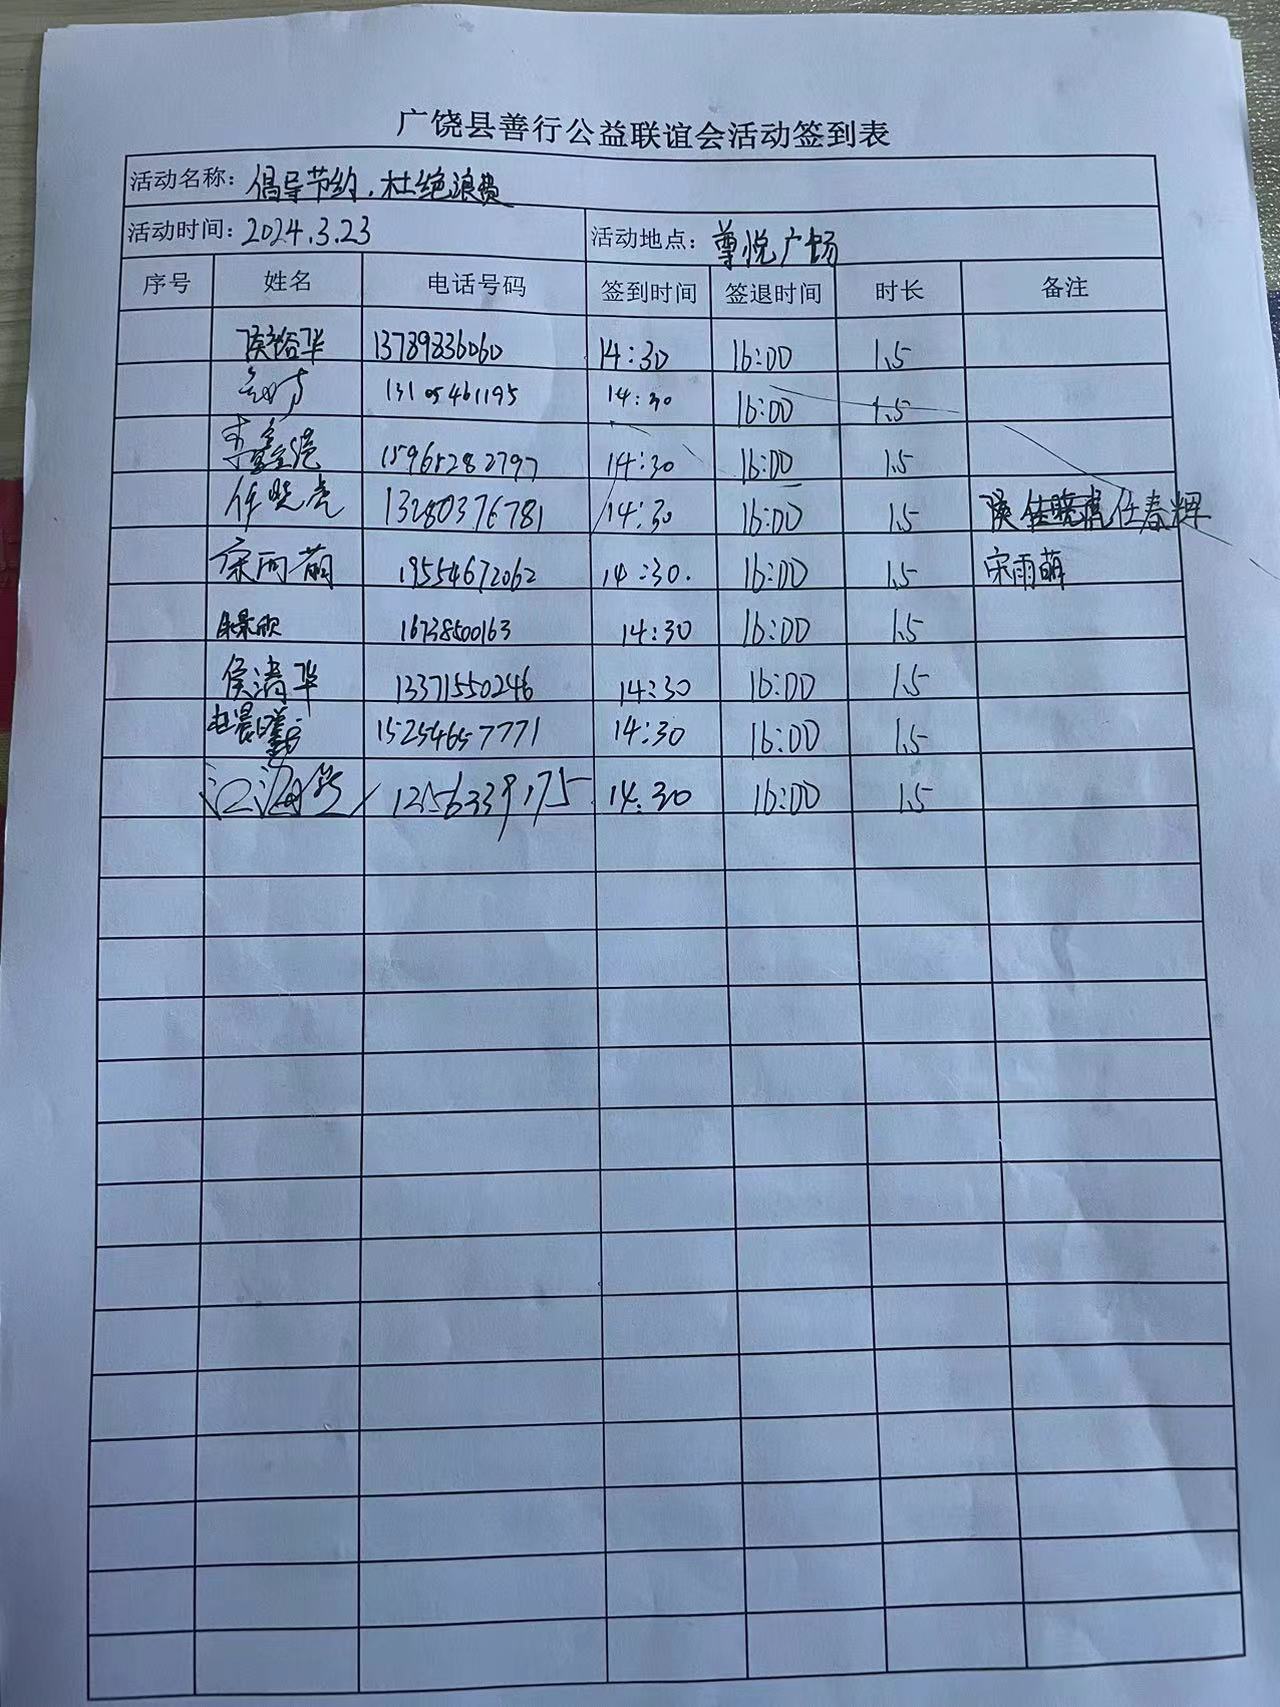 广饶县善行公益联谊会活动签到表
活动名称：倡导节约.杜绝浪费
活动时间：2024.3.23 活动地点：尊悦广场
序号 姓名 电话号码 签到时间 签退时间 时长 备注
13789836060 14:30 16:00 1.5
13105461195 14:30 16:00 1.5
15965282797 14:30 16:00 1.5
任晓亮 13280376781 14:30 16:00 1.5 任春辉
宋雨萌 19554672062 14:30. 16:00 1.5 宋雨萌
16738500163 14:30 16:00 1.5
侯清华 13371550246 14:30 16:00 1.5
15254657771 14:30 16:00 1.5
14:30 16:00 1.5